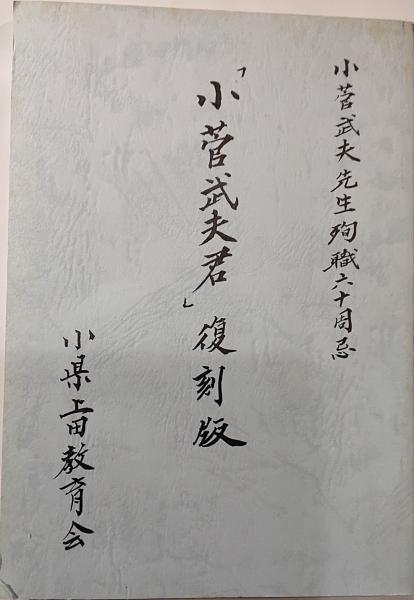 小菅武夫先生殉職六十周忌
「小菅武夫君」復刻版
小県上田教育会